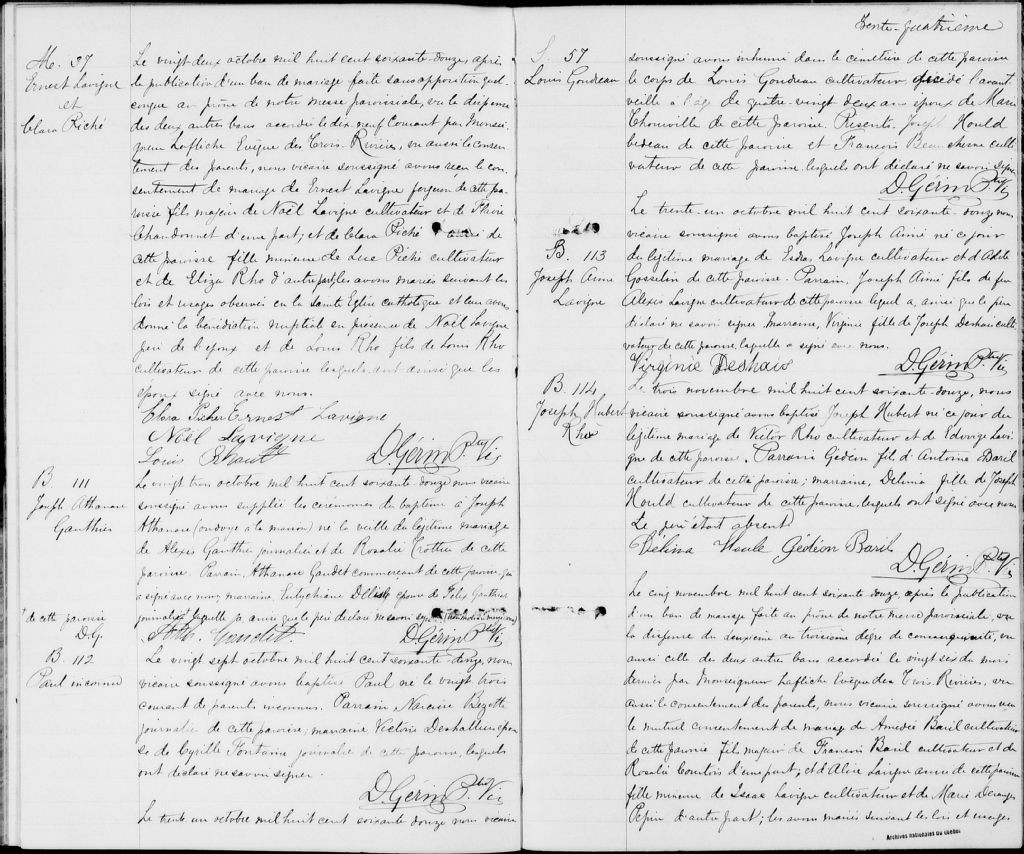 M. 37
Ernest Lavigne
et
Clara Riché
Le vingt deux octobre mil huit cent soixante-douze, après
la publication d'un ban de mariage faite sans opposition quel
conque au prône de notre messe paroissiale, vu la dispense
des deux autres bans accordée le dix neuf courant par Monsei
gneur Lafleche Evêque des Trois Rivières, vu aussi le consen
tement des parents, nous vicaire soussigné avons reçu le con
sentement de mariage de Ernest Lavigne forgeron de cette pa
roisse fils majeur de Noël Lavigne cultivateur et de Flavie
Chandonnet d'une part; et de Clara Riché de
cette paroisse fille mineure de Luce Riché cultivateur
et de Eliza Rho d'autre part, les avons mariés suivant les
lois et usages observés en la Sainte Eglise catholique et leur avons
donné la bénédiction nuptiale en présence de Noël Lavigne
père de l'époux et de Louis Rho fils de Louis Rho
cultivateur de cette paroisse lesquels ont ainsi que les
époux signé avec nous.
Clara Picher Ernest Lavigne
Noël Lavigne
Louis D. Gérin Ptre Vic
B. 111
Joseph Athanase
Gauthier
Le vingt trois octobre mil huit cent soixante douze nous vicaire
soussigné avons suppléé les cérémonies du baptême à Joseph
Athanase (ondoyé à la maison) né la veille du légitime mariage
de Alexis Gauthier journalier et de Rosalie Trottier de cette
paroisse. Parrain, Athanase Gaudet commerçant de cette paroisse, qui
a signé avec nous, marraine, Eutychiane épouse de Félix Gauthier
journalier laquelle ainsi que le père déclare ne savoir signer
+ de cette paroisse
D.G.
Ath. Gaudet D. Gérin Ptre Vic
B. 112
Paul inconnu
Le vingt sept octobre mil huit cent soixante-douze, nous
vicaire soussigné avons baptisé Paul né le vingt trois
courant de parents inconnus. Parrain, Narcisse Bezotte
journalier de cette paroisse, marraine Victorie Deshaltes épou
se de Cyrille Fontaine journalier de cette paroisse, lesquels
ont déclaré ne savoir signer.
D. Gérin Ptre Vic
Le trente un octobre mil huit cent soixante douze nous vicaire
Trente-quatrième
S. 57
Louis Goudreau
soussigné avons inhumé dans le cimetière de cette paroisse
le corps de Louis Goudreau cultivateur décédé l'avant
veille à l'âge de quatre-vingt deux ans époux de Marie
Thouville de cette paroisse. Présents, Joseph Hould
bedeau de cette paroisse et Francois Beauchesne culti
vateur de cette paroisse lesquels ont déclaré ne savoir signer
D. Gérin Ptre Vic
B. 113
Joseph Aimé
Lavigne
Le trente-un octobre mil huit cent soixante-douze nous
vicaire soussigné avons baptisé Joseph Aimé né ce jour
du légitime mariage de Esdas Lavigne cultivateur et d'Adèle
Gosselin de cette paroisse. Parrain, Joseph Aimé fils de feu
Alexis Lavigne cultivateur de cette paroisse lequel a, ainsi que le père
déclaré ne savoir signer Marraine, Virginie fille de Joseph Deshaies culti
vateur de cette paroisse, laquelle a signé avec nous.
Virginie Deshais D. Gérin Ptre Vic
B. 114
Joseph Hubert
Rho
Le trois novembre mil huit cent soixante-douze, nous
vicaire soussigné avons baptisé Joseph Hubert né ce jour du
légitime mariage de Victor Rho cultivateur et de Edwige Lavi
gne de cette paroisse. Parrain Gédéon fils d'Antoine Baril
cultivateur de cette paroisse; marraine, Délima fille de Joseph
Hould cultivateur de cette paroisse, lesquels ont signé avec nous
Le père était absent
Délina Houle Gédéon Baril
D. Gérin Ptre Vic
Le cinq novembre mil huit cent soixante douze, après la publication
d'un ban de mariage faite au prône de notre messe paroissiale, vu
la dispense du deuxième au troisième degré de consanguinité, vu
aussi celle des deux autres bans accordée le vingt six du mois
dernier par Monseigneur Lafleche Evêque des Trois-Rivières, vu
aussi le consentement des parents, nous vicaire soussigné avons reçu
le mutuel consentement de mariage de Amédée Baril cultivateur
de cette paroisse fils majeur de Francois Baril cultivateur et de
Rosalie Courtois d'une part; et d'Alice Lavigne aussi de cette paroisse
fille mineure de Isaac Lavigne cultivateur et de Marie Desanges
Pepin d'autre part; les avons mariés suivant les lois et usages
Archives nationales du Québec